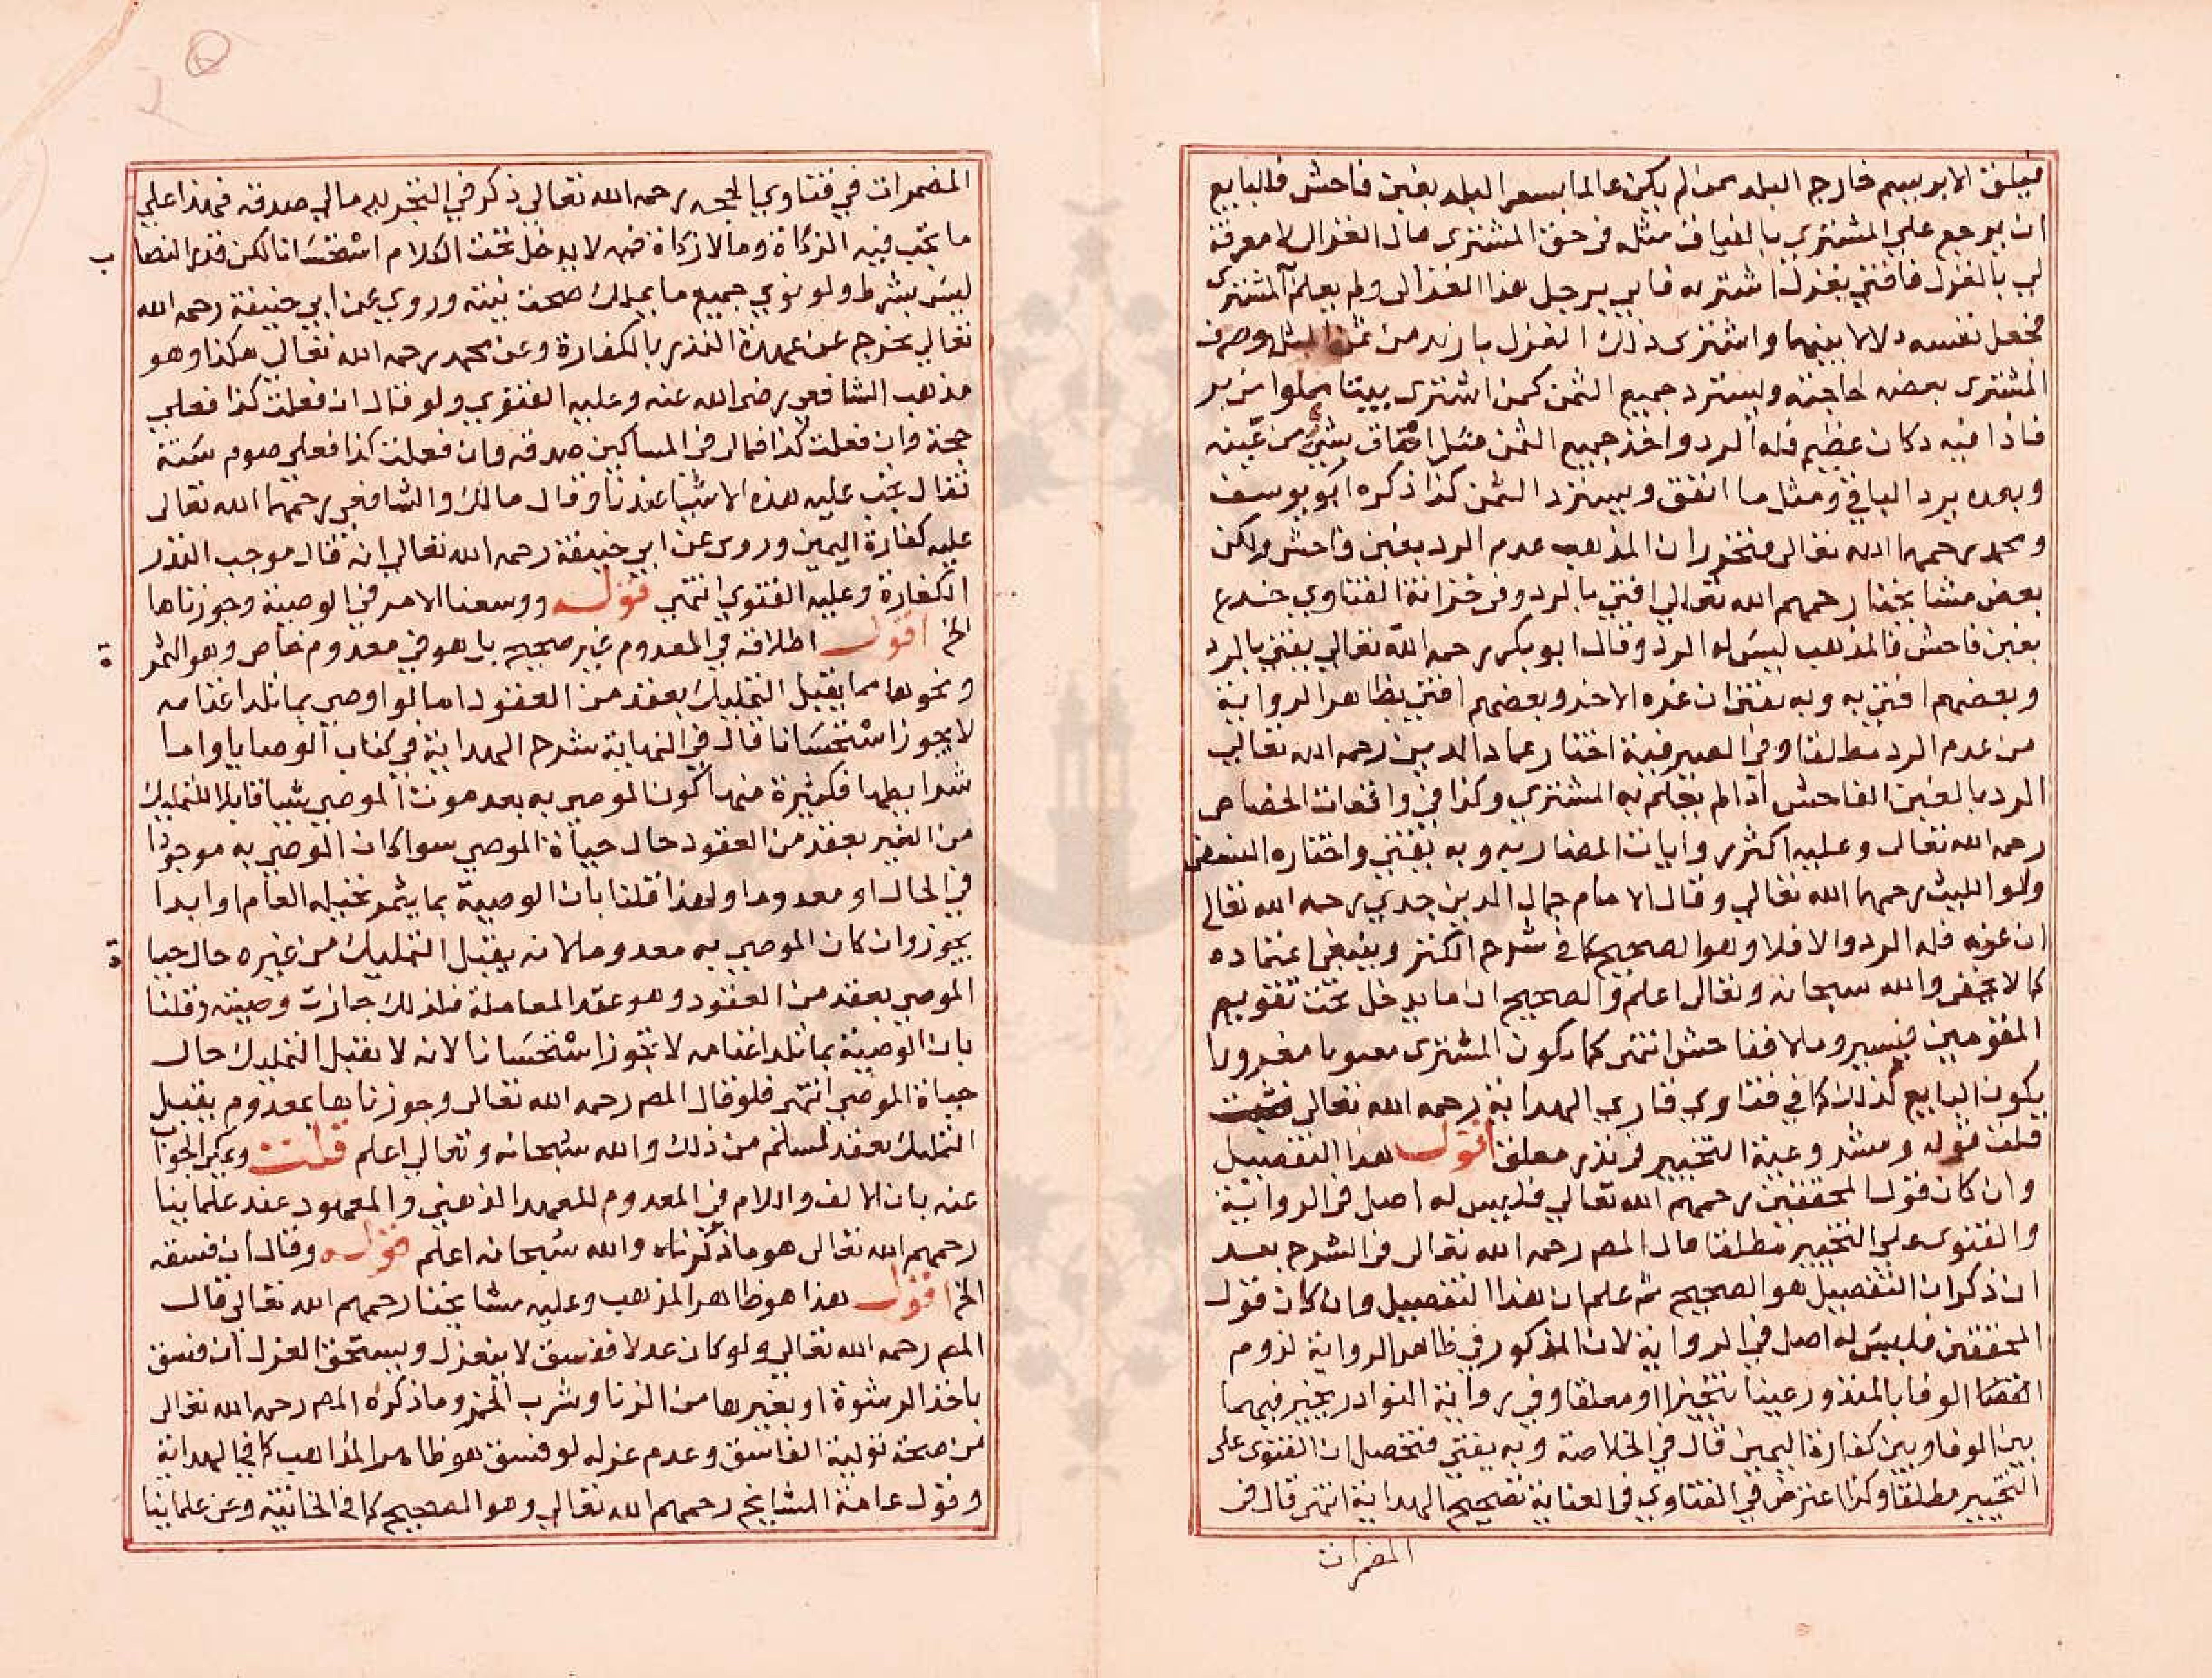 فيلق الابريسم خارج البلد ممن لم يكن عالما بسعر البلد بغبن فاحش فالبايع
ان يرجع علي المشتري بالفياق مثله في حق المشتري قال الغزال لا معرفة
لي بالغزل فاتني بغزل اشتريه فاتي برجل هذا الغزال ولم يعلم المشتري
فجعل نفسه دلالا بينهما واشتري ذلك الغزل بازيد من ثمن المثل وصرف
المشتري بعضه لحاجته ويسترد جميع الثمن كمن اشتري بيتا مملوا من بر
فاذا فيه دكان عظيم فله الرد واخذ جميع الثمن قبل انفاق شئ من عينه
وبعده يرد الباقي ومثل ما انفق ويسترد الثمن كذا ذكره ابو يوسف
ومحمد رحمهما الله تعالي فتحرر ان المذهب عدم الرد بغبن فاحش ولكن
بعض مشايخنا رحمهم الله تعالي افتي بالرد وفي خزانة الفتاوي خدع
بغبن فاحش فالمذهب ليس له الرد وقال ابو بكر رحمه الله تعالي يفتي بالرد
وبعضهم افتي به وبه يفتي ان غره الاخد وبعضهم افتي بظاهر الرواية
من عدم الرد مطلقا وفي الصيرفية اختار عماد الدين رحمه الله تعالي
الرد بالغبن الفاحش اذا لم يعلم به المشتري وكذا في واقعات الخصاص
رحمه الله تعالي وعليه اكثر روايات المضاربه وبه يفتي واختاره النسفي
وابو الليث رحمهما الله تعالي وقال الامام جمال الدين جدي رحمه الله تعالي
ان غره فله الرد والا فلا وهو الصحيح كما في شرح الكنز وينبغي اعتماده
كما لا يخفي والله سبحانه وتعالي اعلم والصحيح ان ما يدخل تحت تقويم
المقومين فيسير وما لا ففاحش انتهي كما يكون المشتري مغبونا مغرورا
يكون البايع كذلك كما في فتاوي قاري الهداية رحمه الله تعالي
قلت قوله ومشروعية التخيير في نذر معلق اقول هذا التفصيل
وان كان قول المحققين رحمهم الله تعالي فليس له اصل في الرواية
والفتوي علي التخيير مطلقا قال المص رحمه الله تعالي في الشرح بعد
ان ذكر ان التفصيل هو الصحيح ثم علم ان هذا التفصيل وان كان قول
المحققين فليس له اصل في الرواية لان المذكور في ظاهر الرواية لزوم
الوفا بالمنذور عينا منجزا او معلقا وفي رواية النوادر يخير فيهما
بين الوفا وبين كفارة اليمين قال في الخلاصة وبه يفتي فتحصل ان الفتوي علي
التخيير مطلقا وكذا اعترض في الفتاوي في العناية تصحيح الهداية انتهي قال في
المضمرات
المضمرات في فتاوي الحجه رحمه الله تعالي ذكر في التجريد مالي صدقة فهذا علي
ما تجب فيه الزكاة وما لا زكاة فيه لا يدخل تحت الكلام استحسانا لكن قدر النصا
ب
ليس بشرط ولو نوي جميع ما يملك صحت نيته وروي عن ابي حنيفة رحمه الله
تعالي يخرج عن عهدة النذر بالكفارة وعن محمد رحمه الله تعالي هكذا وهو
مذهب الشافعي رضي الله عنه وعليه الفتوي ولو قال ان فعلت كذا فعلي
حجة وان فعلت كذا فمالي في المساكين صدقه وان فعلت كذا فعلي صوم سنة
فقال يجب عليه هذه الاشيا عندنا وقال مالك والشافعي رحمهما الله تعالي
عليه كفارة اليمين وروي عن ابي حنيفة رحمه الله تعالي انه قال موجب النذر
الكفارة وعليه الفتوي انتهي قوله ووسعنا الامر في الوصية وجوزناها
الخ اقول اطلاقه في المعدوم غير صحيح بل هو في معدوم خاص وهو الثمر
ة
ونحوها مما يقبل التمليك بعقد من العقود اما لو اوصي بما تلد اغنامه
لا يجوز استحسانا قال في النهاية شرح الهداية في كتاب الوصايا واما
شرايطها فكثيرة منها كون الموصي به بعد موت الموصي شيا قابلا للتمليك
من الغير بعقد من العقود حال حياة الموصي سوا كان الموصي به موجودا
في الحال او معدوما ولهذا قلنا بان الوصية بما يثمر نخيله العام او ابدا
يجوز وان كان الموصي به معدوما لانه يقبل التمليك من غيره حال حيا
ة
الموصي بعقد من العقود وهو عقد المعاملة فلذلك جازت وصيته وقلنا
بان الوصية بما تلد اغنامه لا تجوز استحسانا لانه لا يقبل التمليك حال
حياة الموصي انتهي فلو قال المص رحمه الله تعالي وجوزناها بمعدوم يقبل
التمليك بعقد لسلم من ذلك والله سبحانه وتعالي اعلم قلت ويمكن الجواب
عنه بان الالف واللام في المعدوم للعهد الذهني والمعهود عند علماينا
رحمهم الله تعالي هو ما ذكرناه والله سبحانه اعلم قوله وقال ان فسقه
الخ اقول هذا هو ظاهر المذهب وعليه مشايخنا رحمهم الله تعالي قال
المص رحمه الله تعالي ولو كان عدلا ففسق لا ينعزل ويستحق العزل ان فسق
باخذ الرشوة او بغيرها من الزنا وشرب الخمر وما ذكره المص رحمه الله تعالي
من صحة تولية الفاسق وعدم عزله لو فسق هو ظاهر المذاهب كما في الهداية
وقول عامة المشايخ رحمهم الله تعالي وهو الصحيح كما في الخانية وعن علماينا